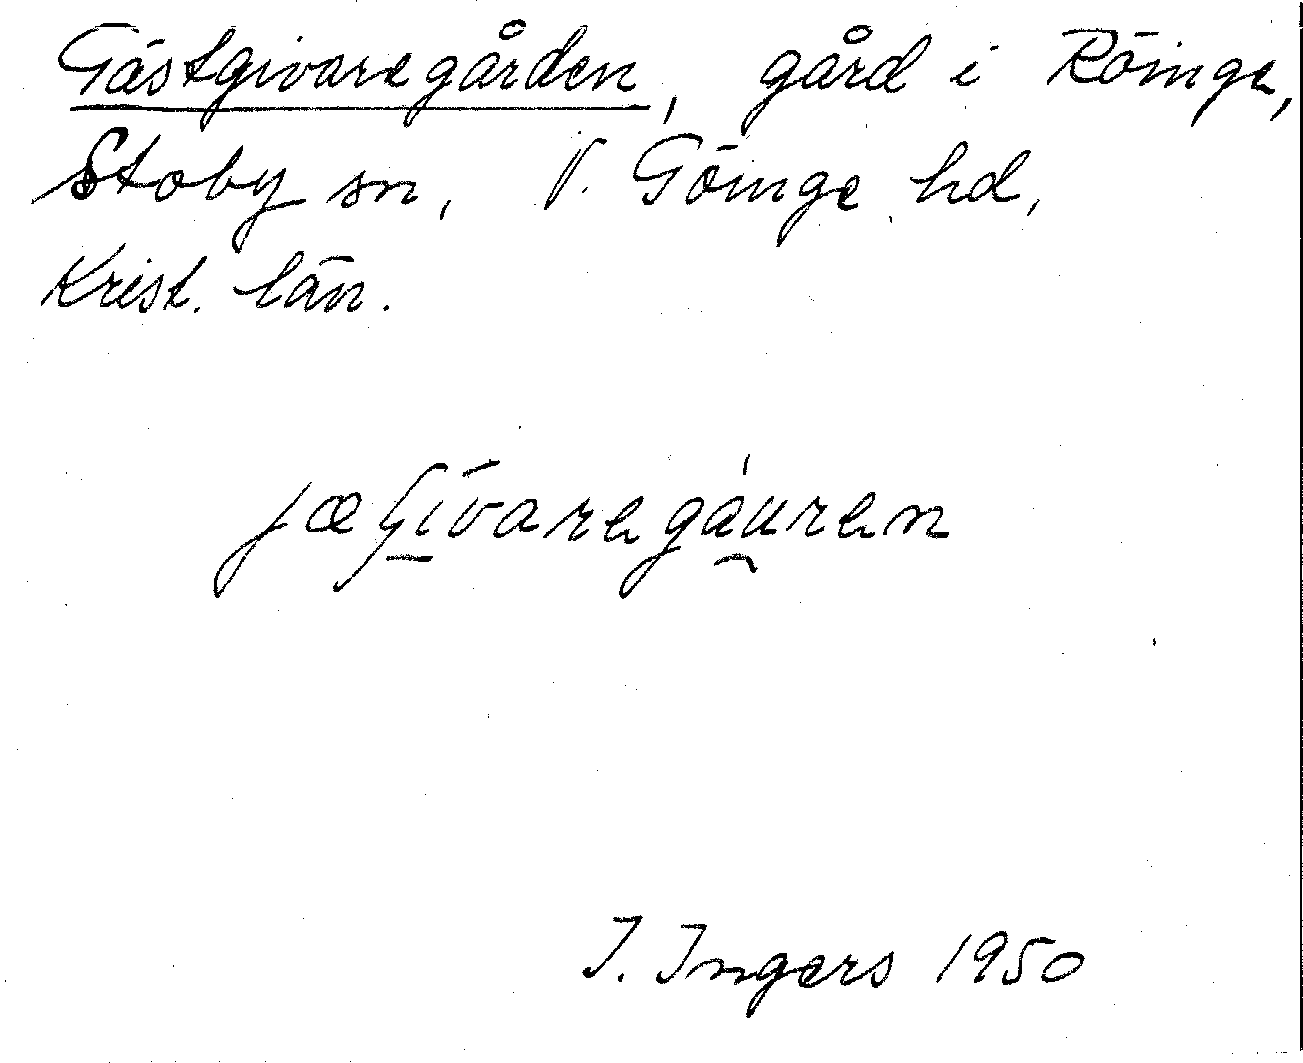 Gästgivaregården, gård i Röinge,
Stoby sn, V. Göinge hd,
Krist. län.
jæʃívaregáuren
I. Ingers 1950